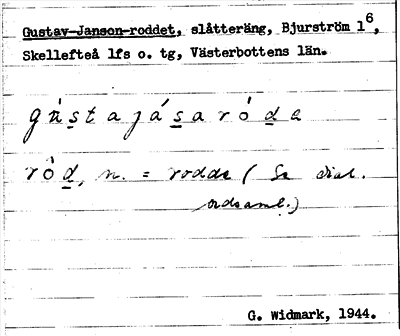 Gustav-Janson-roddet, slåtteräng, Bjurström 1⁶,
Skellefteå lfs o. tg, Västerbottens län.
gùstajásaròde
ròd, n. = rodde ( Se dial.
ordsaml.)
G. Widmark, 1944.